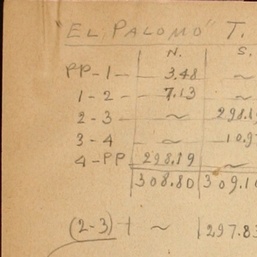 "EL PALOMO" T.
N. S.
PP-1- 3.48 ~
1-2- 7.13 ~
2-3- ~ 298.1
3-4 ~ 10.9
4-PP 298.19 ~
308.80 309.1
(2-3)- ~ 297.83